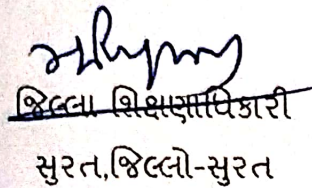 જિલ્લા શિક્ષણાધિકારી
સુરત,જિલ્લો-સુરત